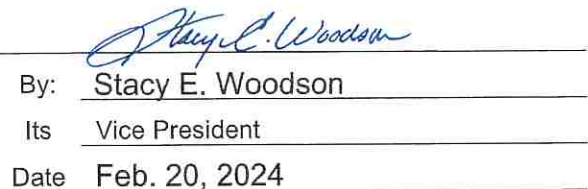 Stacy E. Woodson
By: Stacy E. Woodson
Its Vice President
Date Feb. 20, 2024